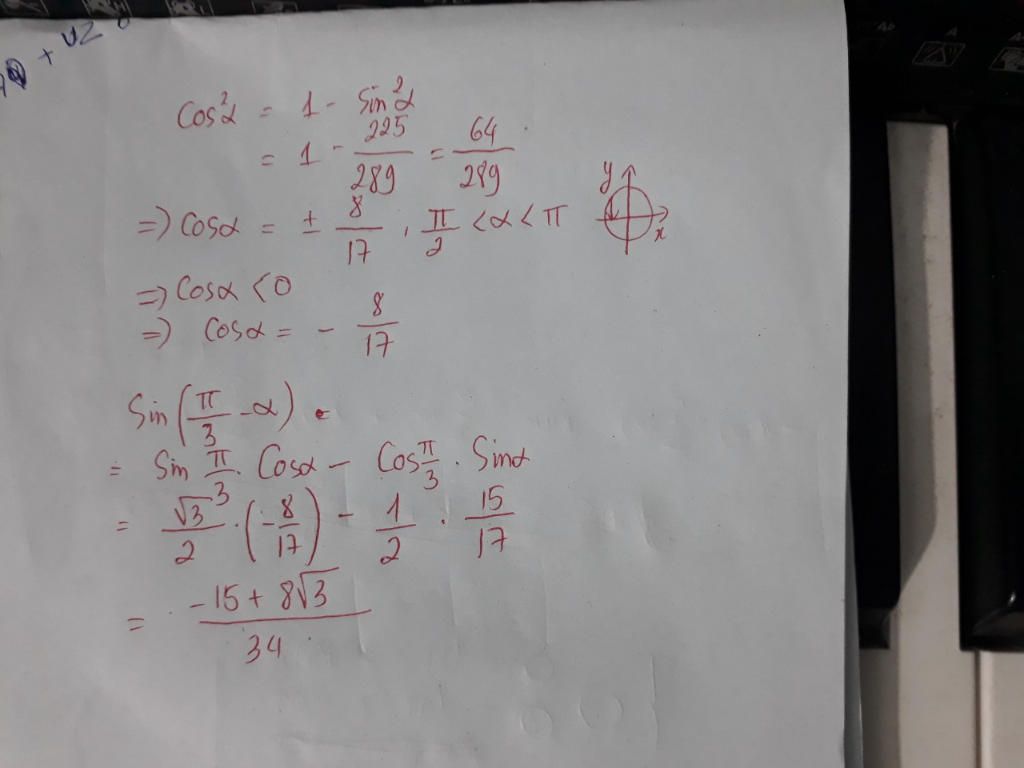 + U2
Cos²α = 1 - Sin²α
= 1 - 225/289 = 64/289
=> Cosα = ± 8/17 , π/2 < α < π
y
x
=> Cosα < 0
=> Cosα = - 8/17
Sin(π/3 - α) =
= Sin π/3 · Cosα - Cos π/3 · Sinα
= √3/2 · (-8/17) - 1/2 · 15/17
= (-15 + 8√3)/34